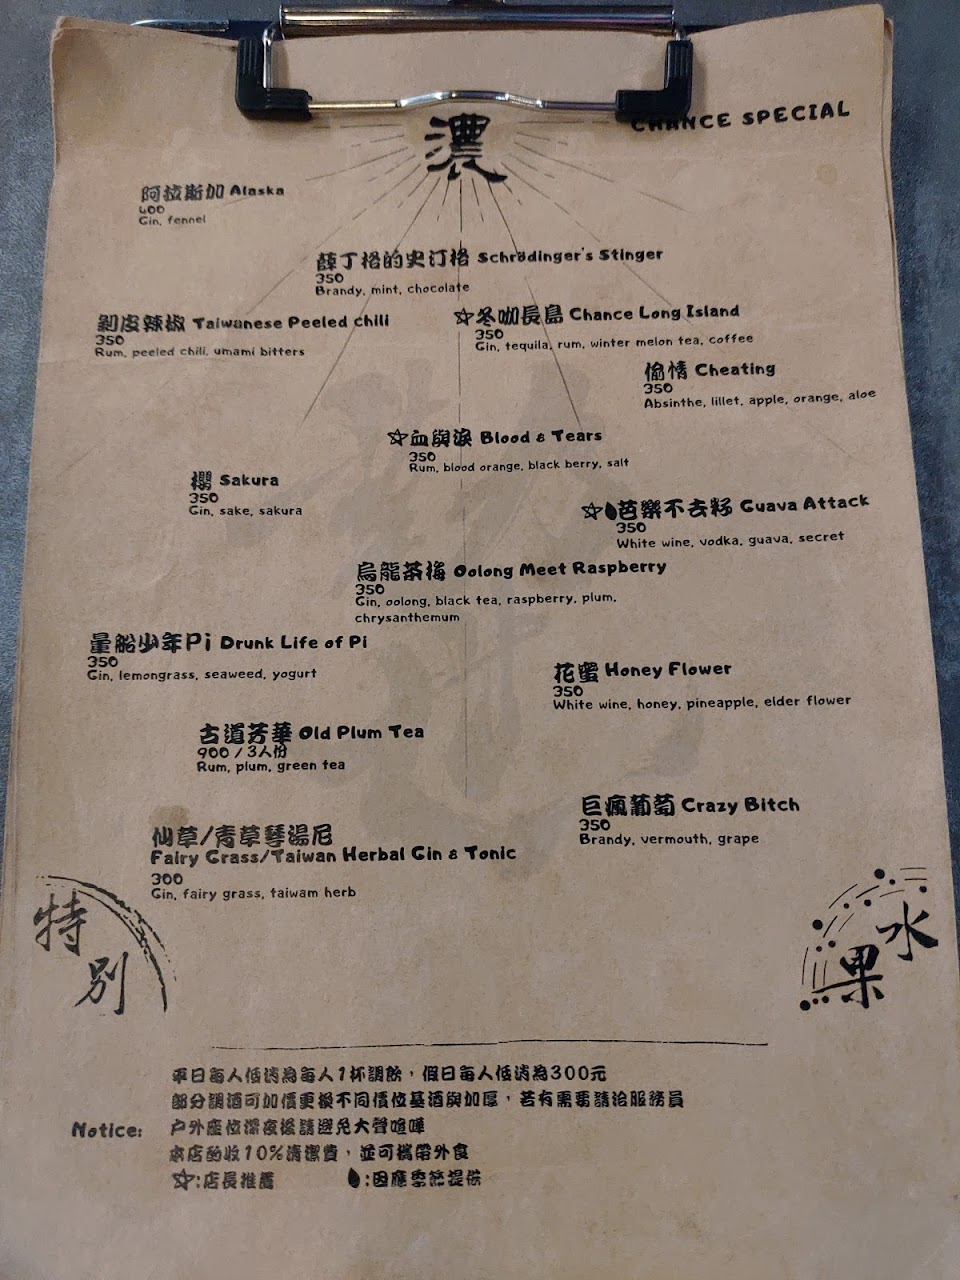 濃
CHANCE SPECIAL
阿拉斯加 Alaska
400
Gin, fennel
薛丁格的史汀格 Schrödinger's Stinger
350
Brandy, mint, chocolate
剝皮辣椒 Taiwanese Peeled chili
350
Rum, peeled chili, umami bitters
☆冬咖長島 Chance Long Island
350
Gin, tequila, rum, winter melon tea, coffee
偷情 Cheating
350
Absinthe, lillet, apple, orange, aloe
☆血與淚 Blood & Tears
350
Rum, blood orange, black berry, salt
櫻 Sakura
350
Gin, sake, sakura
☆芭樂不去籽 Guava Attack
350
White wine, vodka, guava, secret
烏龍茶梅 Oolong Meet Raspberry
350
Gin, oolong, black tea, raspberry, plum,
chrysanthemum
暈船少年Pi Drunk Life of Pi
350
Gin, lemongrass, seaweed, yogurt
花蜜 Honey Flower
350
White wine, honey, pineapple, elder flower
古道芳華 Old Plum Tea
900 / 3人份
Rum, plum, green tea
巨瘋葡萄 Crazy Bitch
350
Brandy, vermouth, grape
仙草/青草琴湯尼
Fairy Grass/Taiwan Herbal Gin & Tonic
300
Gin, fairy grass, taiwam herb
特別
水果
平日每人低消為每人1杯調飲，假日每人低消為300元
部分調酒可加價更換不同價位基酒與加厚，若有需要請洽服務員
Notice: 戶外座位深夜後請避免大聲喧嘩
本店酌收10%清潔費，並可攜帶外食
☆:店長推薦 :因應季節提供